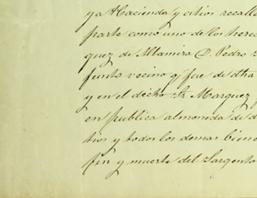 ya Hacienda y citios recalle
parte como uno de los here
quez de Altamira D. Pedro
funto vecino q fue de dha
y en el dicho Sr. Marquez
en publica almoneda de d
tios y todos los demas biene
fin y muerte del Sargento